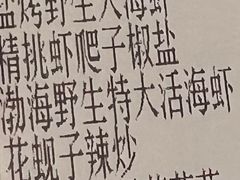 盐烤野生大海虾
精挑虾爬子椒盐
渤海野生特大活海虾
花蚬子辣炒